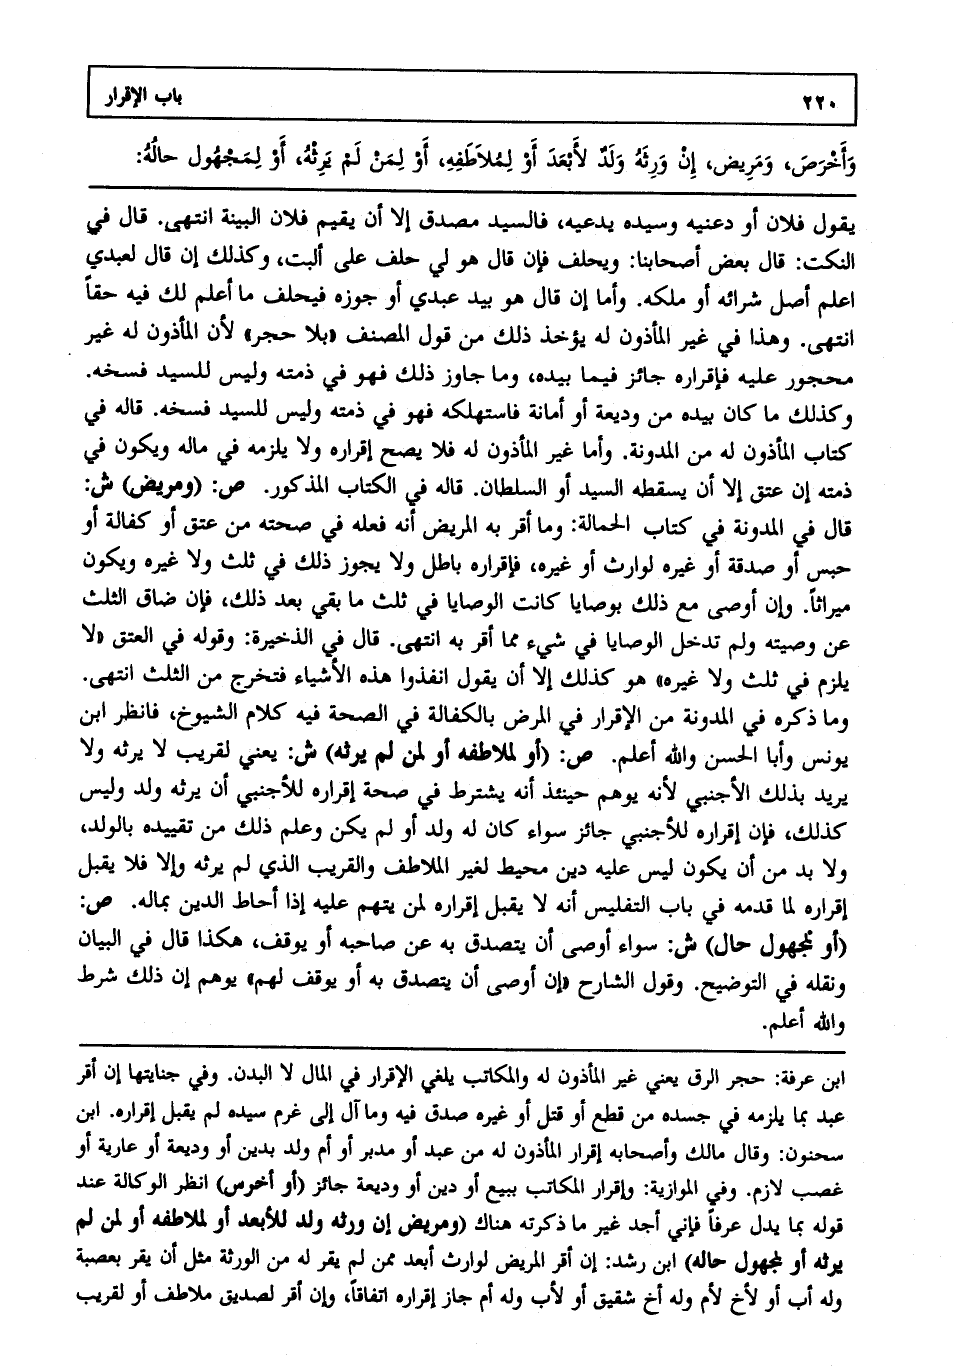 ٢٢٠ باب الإقرار
وَأَخْرَصَ، وَمَرِيض، إِنْ وَرِثَهُ وَلَدٌ لأَبْعَدَ أَوْ لِمُلاَطَفِهِ، أَوْ لِمَنْ لَمْ يَرِثْهُ، أَوْ لِمَجْهُول حالُهُ:
يقول فلان أو دعنيه وسيده يدعيه، فالسيد مصدق إلا أن يقيم فلان البينة انتهى. قال في
النكت: قال بعض أصحابنا: ويحلف فإن قال هو لي حلف على ألبت، وكذلك إن قال لعبدي
اعلم أصل شرائه أو ملكه. وأما إن قال هو بيد عبدي أو جوزه فيحلف ما أعلم لك فيه حقاً
انتهى. وهذا في غير المأذون له يؤخذ ذلك من قول المصنف «بلا حجر» لأن المأذون له غير
محجور عليه فإقراره جائز فيما بيده، وما جاوز ذلك فهو في ذمته وليس للسيد فسخه.
وكذلك ما كان بيده من وديعة أو أمانة فاستهلكه فهو في ذمته وليس للسيد فسخه. قاله في
كتاب المأذون له من المدونة. وأما غير المأذون له فلا يصح إقراره ولا يلزمه في ماله ويكون في
ذمته إن عتق إلا أن يسقطه السيد أو السلطان. قاله في الكتاب المذكور. ص: (ومريض) ش:
قال في المدونة في كتاب الحمالة: وما أقر به المريض أنه فعله في صحته من عتق أو كفالة أو
حبس أو صدقة أو غيره لوارث أو غيره، فإقراره باطل ولا يجوز ذلك في ثلث ولا غيره ويكون
ميراثاً. وإن أوصى مع ذلك بوصايا كانت الوصايا في ثلث ما بقي بعد ذلك، فإن ضاق الثلث
عن وصيته ولم تدخل الوصايا في شيء مما أقر به انتهى. قال في الذخيرة: وقوله في العتق «لا
يلزم في ثلث ولا غيره» هو كذلك إلا أن يقول انفذوا هذه الأشياء فتخرج من الثلث انتهى.
وما ذكره في المدونة من الإقرار في المرض بالكفالة في الصحة فيه كلام الشيوخ، فانظر ابن
يونس وأبا الحسن والله أعلم. ص: (أو لملاطفه أو لمن لم يرثه) ش: يعني لقريب لا يرثه ولا
يريد بذلك الأجنبي لأنه يوهم حينئذ أنه يشترط في صحة إقراره للأجنبي أن يرثه ولد وليس
كذلك، فإن إقراره للأجنبي جائز سواء كان له ولد أو لم يكن وعلم ذلك من تقييده بالولد،
ولا بد من أن يكون ليس عليه دين محيط لغير الملاطف والقريب الذي لم يرثه وإلا فلا يقبل
إقراره لما قدمه في باب التفليس أنه لا يقبل إقراره لمن يتهم عليه إذا أحاط الدين بماله. ص:
(أو لمجهول حال) ش: سواء أوصى أن يتصدق به عن صاحبه أو يوقف، هكذا قال في البيان
ونقله في التوضيح. وقول الشارح «إن أوصى أن يتصدق به أو يوقف لهم» يوهم إن ذلك شرط
والله أعلم.
ابن عرفة: حجر الرق يعني غير المأذون له والمكاتب يلغي الإقرار في المال لا البدن. وفي جنايتها إن أقر
عبد بما يلزمه في جسده من قطع أو قتل أو غيره صدق فيه وما آل إلى غرم سيده لم يقبل إقراره. ابن
سحنون: وقال مالك وأصحابه إقرار المأذون له من عبد أو مدبر أو أم ولد بدين أو وديعة أو عارية أو
غصب لازم. وفي الموازية: وإقرار المكاتب ببيع أو دين أو وديعة جائز (أو أخرس) انظر الوكالة عند
قوله بما يدل عرفاً فإني أجد غير ما ذكرته هناك (ومريض إن ورثه ولد للأبعد أو لملاطفه أو لمن لم
يرثه أو لمجهول حاله) ابن رشد: إن أقر المريض لوارث أبعد ممن لم يقر له من الورثة مثل أن يقر بعصبة
وله أب أو لأخ لأم وله أخ شقيق أو لأب وله أم جاز إقراره اتفاقاً، وإن أقر لصديق ملاطف أو لقريب